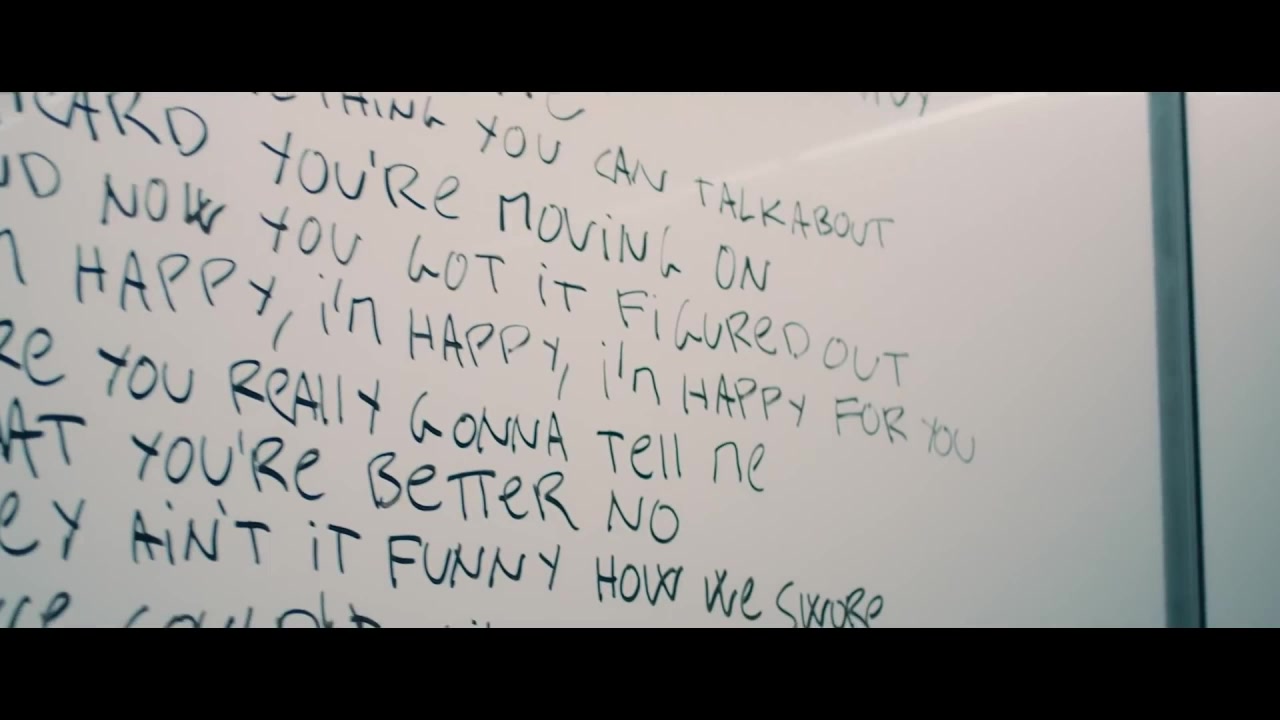 YOU CAN TALK ABOUT
YOU'RE MOVING ON
NOW YOU GOT iT FiGURED OUT
HAPPY, i'm HAPPY, i'm HAPPY FOR YOU
YOU ReAllY GONNA Tell me
YOU'Re BeTTeR NO
AiN'T iT FUNNY HOW We SWORe